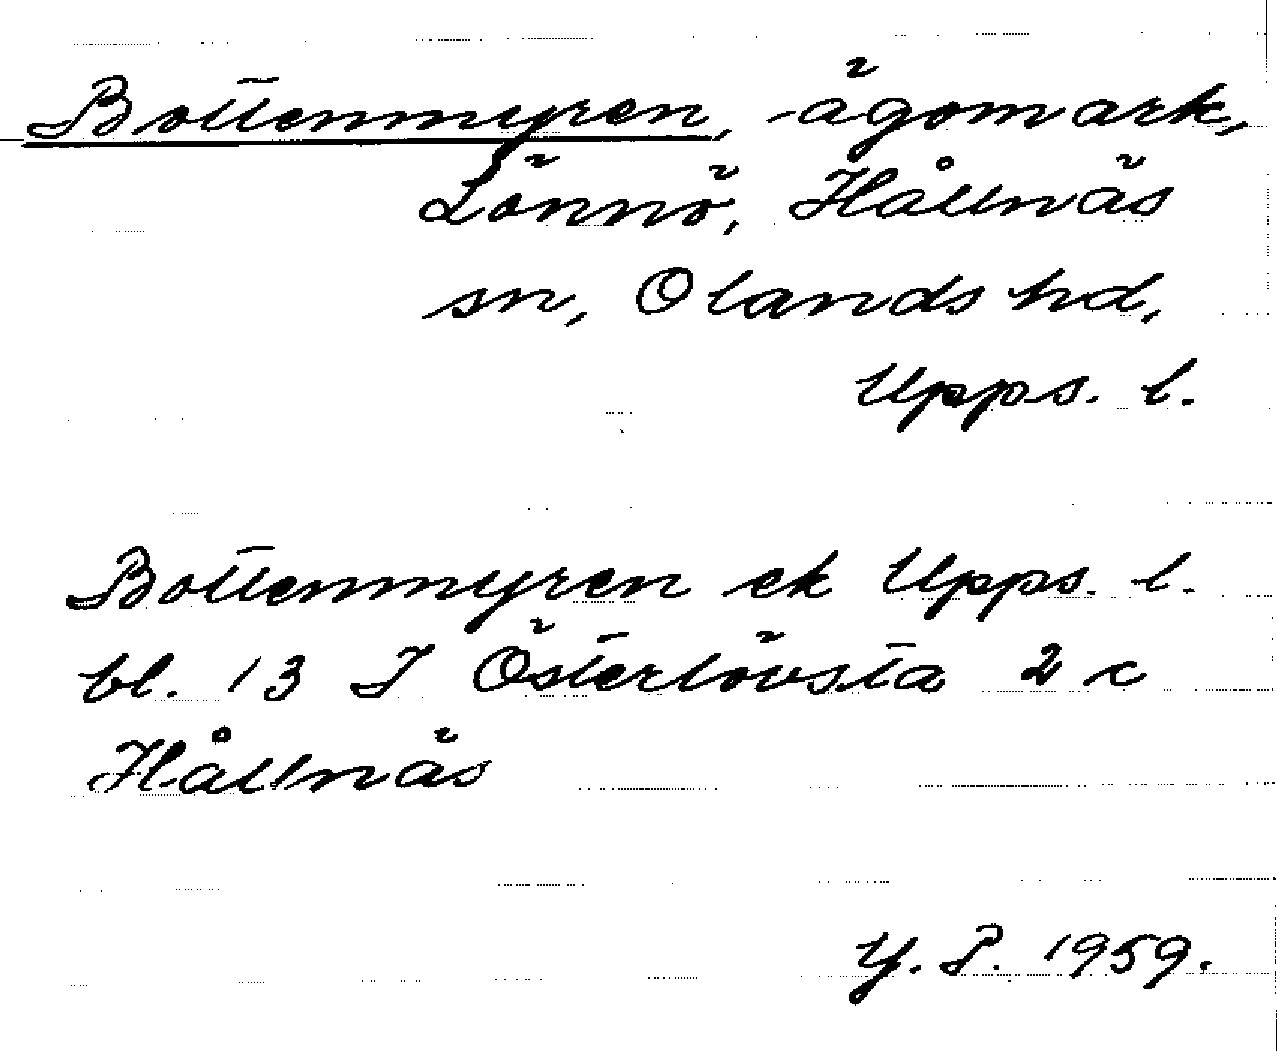 Bottenmyren, ägomark,
Lönnö, Hållnäs
sn, Olands hd,
Upps. l.
Bottenmyren ek Upps. l.
bl. 13 I Österlövsta 2 c
Hållnäs
Y. P. 1959.